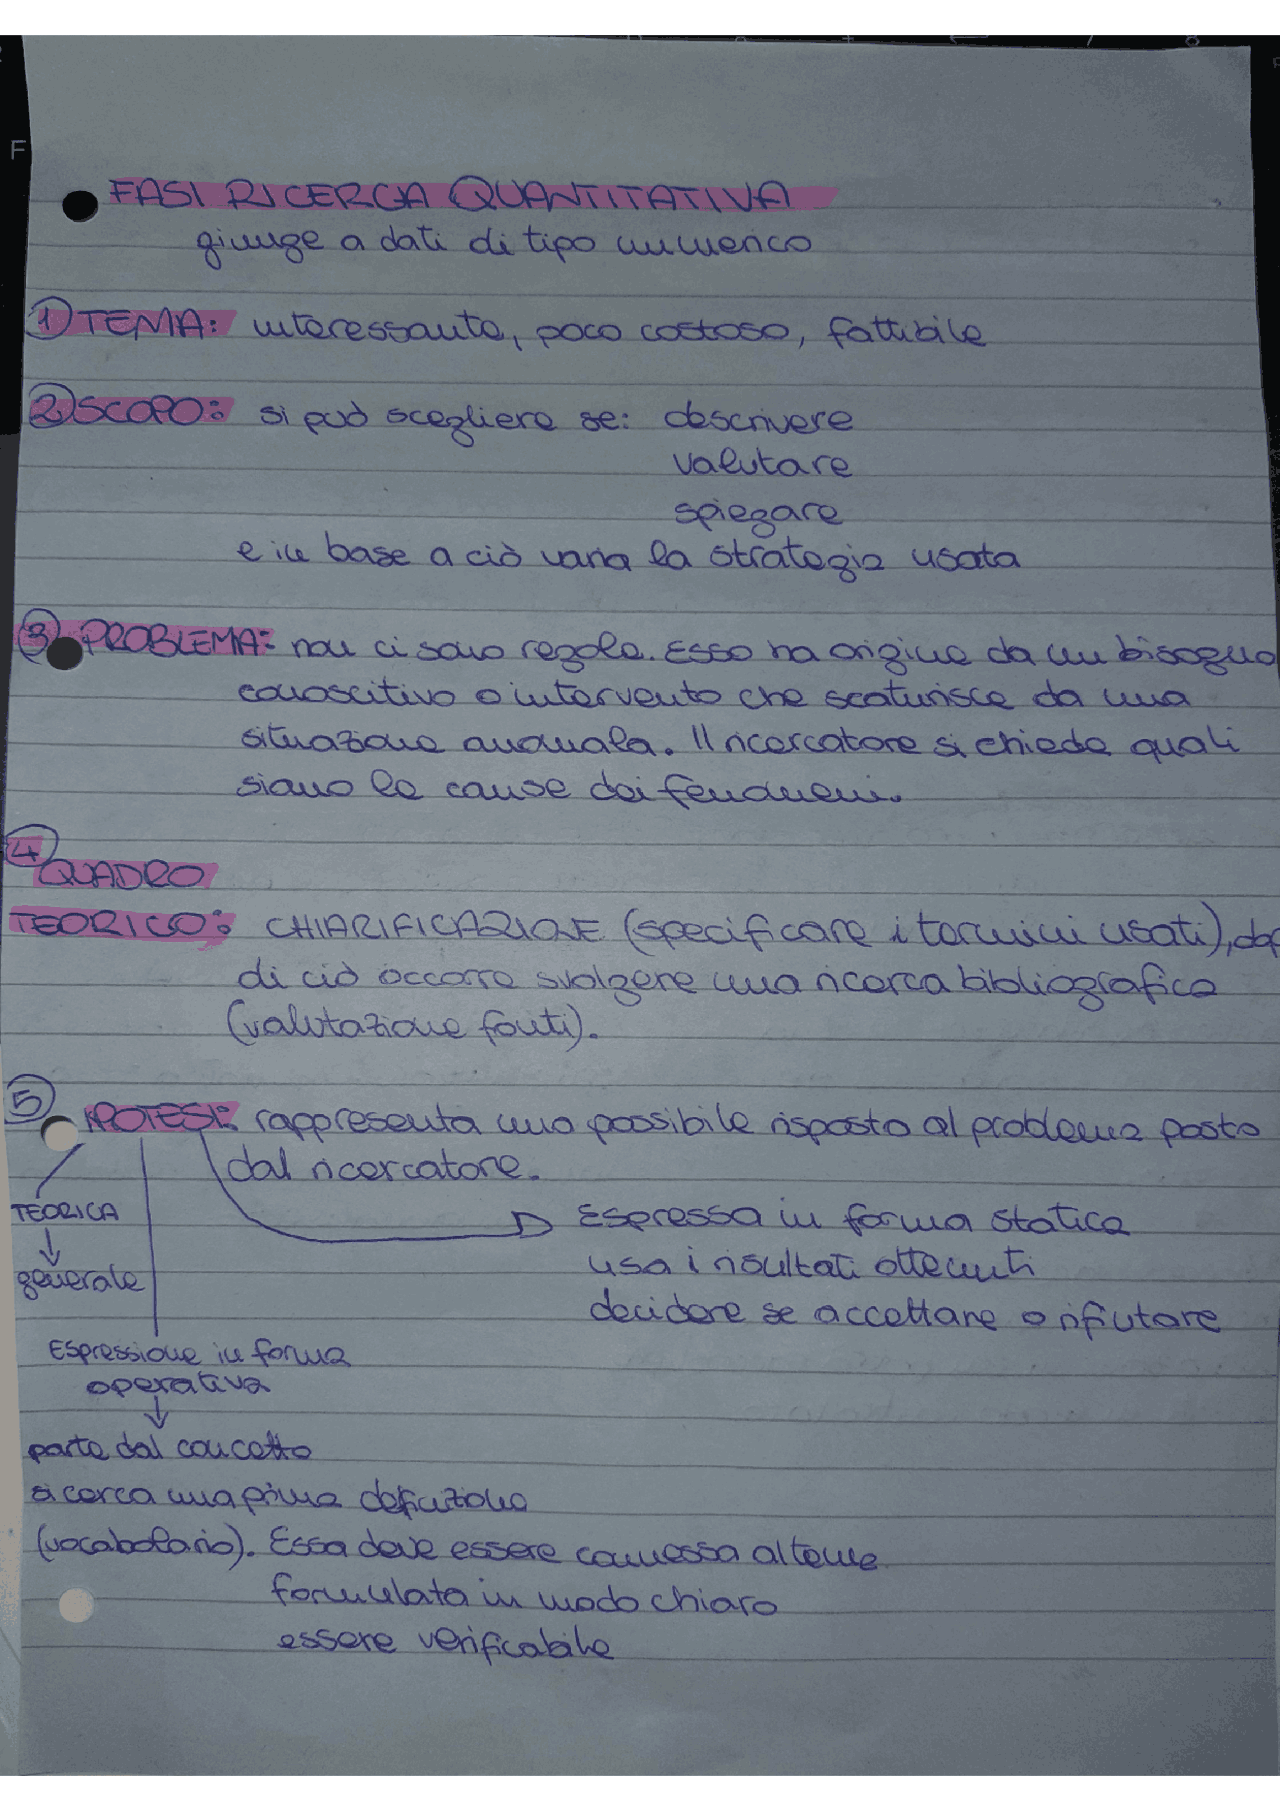 FASI RICERCA QUANTITATIVA
giunge a dati di tipo numerico
1) TEMA: interessante, poco costoso, fattibile
2) SCOPO: si può scegliere se: descrivere
valutare
spiegare
e in base a ciò varia la strategia usata
3) PROBLEMA: non ci sono regole. Esso ha origine da un bisogno
conoscitivo o intervento che scaturisce da una
situazione anomala. Il ricercatore si chiede quali
siano le cause dei fenomeni.
4
QUADRO
TEORICO: CHIARIFICAZIONE (specificare i termini usati), dop
di ciò occorre svolgere una ricerca bibliografica
(valutazione fonti).
5
IPOTESI: rappresenta una possibile risposta al problema posto
dal ricercatore.
TEORICA
Espressa in forma statica
usa i risultati ottenuti
generale
decidere se accettare o rifiutare
Espressione in forma
operativa
parte dal concetto
si cerca una prima definizione
(vocabolario). Essa deve essere connessa al tema
formulata in modo chiaro
essere verificabile